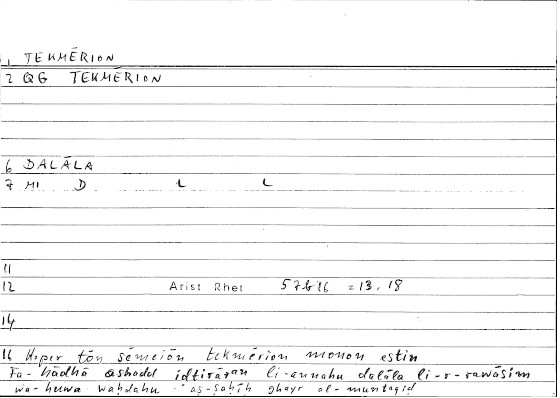 1 TEKMĒRION
2 QG TEKMĒRION
6 DALĀLA
7 MI D L L
11
12 Arist Rhet 57b16 = 13, 18
14
16 Hoper tōn sēmeiōn tekmērion monon estin
Fa-hādhā ashadd iḍtirāran li-annahu dalāla li-r-rawāsim
wa-huwa waḥdahu aṣ-ṣaḥīḥ ghayr al-muntaqiḍ